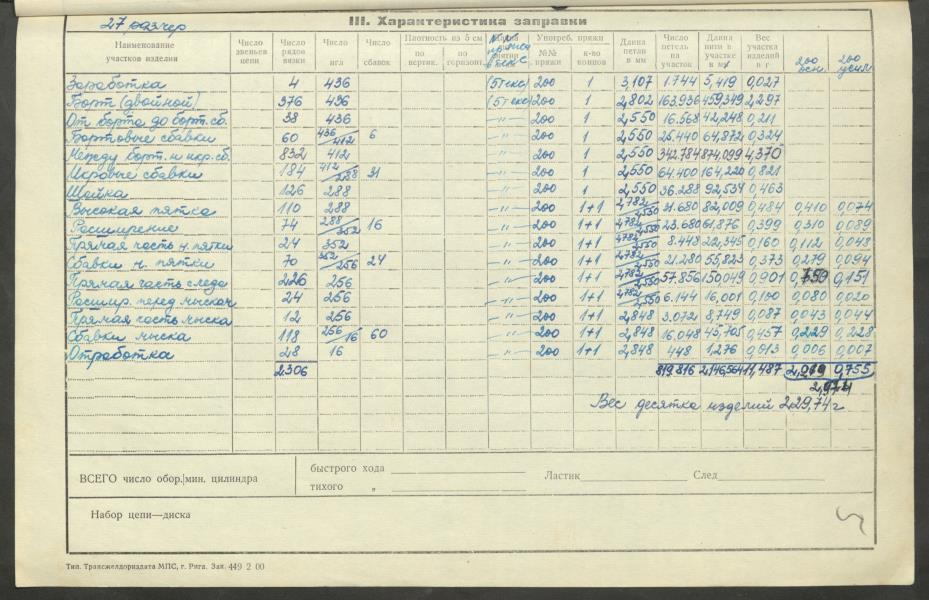 27 размер
III. Характеристика заправки
Наименование участков изделия Число звеньев цепи Число рядов вязки Число игл Число сбавок Плотность из 5 см по вертик. по горизон. Употреб. пряжи №№ пряжи к-во концов Длина петли в мм Число петель на участок Длина нити в участке в м Вес участка изделия в г 200 осн. 200 усил.
Заработка 4 436 (5текс) 200 1 3,107 1.744 5,419 0,027
Борт (двойной) 376 436 (5текс) 200 1 2,802 163.936 459,349 2,297
От борта до борт. сб. 38 436 -"- 200 1 2,550 16.568 42,248 0,211
Бортовые сбавки 60 436/412 6 -"- 200 1 2,550 25.440 64,872 0,324
Между борт. и икр. сб. 832 412 -"- 200 1 2,550 342.784 874,099 4,370
Икровые сбавки 184 412/288 31 -"- 200 1 2,550 64.400 164,220 0,821
Щейка 126 288 -"- 200 1 2,550 36.288 92,534 0,463
Высокая пятка 110 288 -"- 200 1+1 2,782/2,550 31.680 82,009 0,484 0,410 0,074
Расширение 74 288/352 16 -"- 200 1+1 2,782/2,550 23.680 61,876 0,399 0,310 0,089
Прямая часть н. пятки 24 352 -"- 200 1+1 2,782/2,550 8.448 22,345 0,160 0,112 0,048
Сбавки н. пятки 70 352/256 24 -"- 200 1+1 2,782/2,550 21.280 55,823 0,373 0,279 0,094
Прямая часть следа 226 256 -"- 200 1+1 2,782/2,550 57.856 150,049 0,901 0,750 0,151
Расшир. перед мыском 24 256 -"- 200 1+1 2,782/2,550 6.144 16,001 0,100 0,080 0,020
Прямая часть мыска 12 256 -"- 200 1+1 2,848 3.072 8,749 0,087 0,043 0,044
Сбавки мыска 118 256/16 60 -"- 200 1+1 2,848 16.048 45,705 0,457 0,229 0,228
Отработка 28 16 -"- 200 1+1 2,848 448 1,276 0,013 0,006 0,007
2306 819.816 2.146,564 11,487 2,219 0,755
2,974
Вес десятка изделий 229,74 г
ВСЕГО число обор./мин. цилиндра быстрого хода Ластик След
тихого „
Набор цепи—диска
Тип. Трансжелдориздата МПС, г. Рига. Зак. 449 2 00